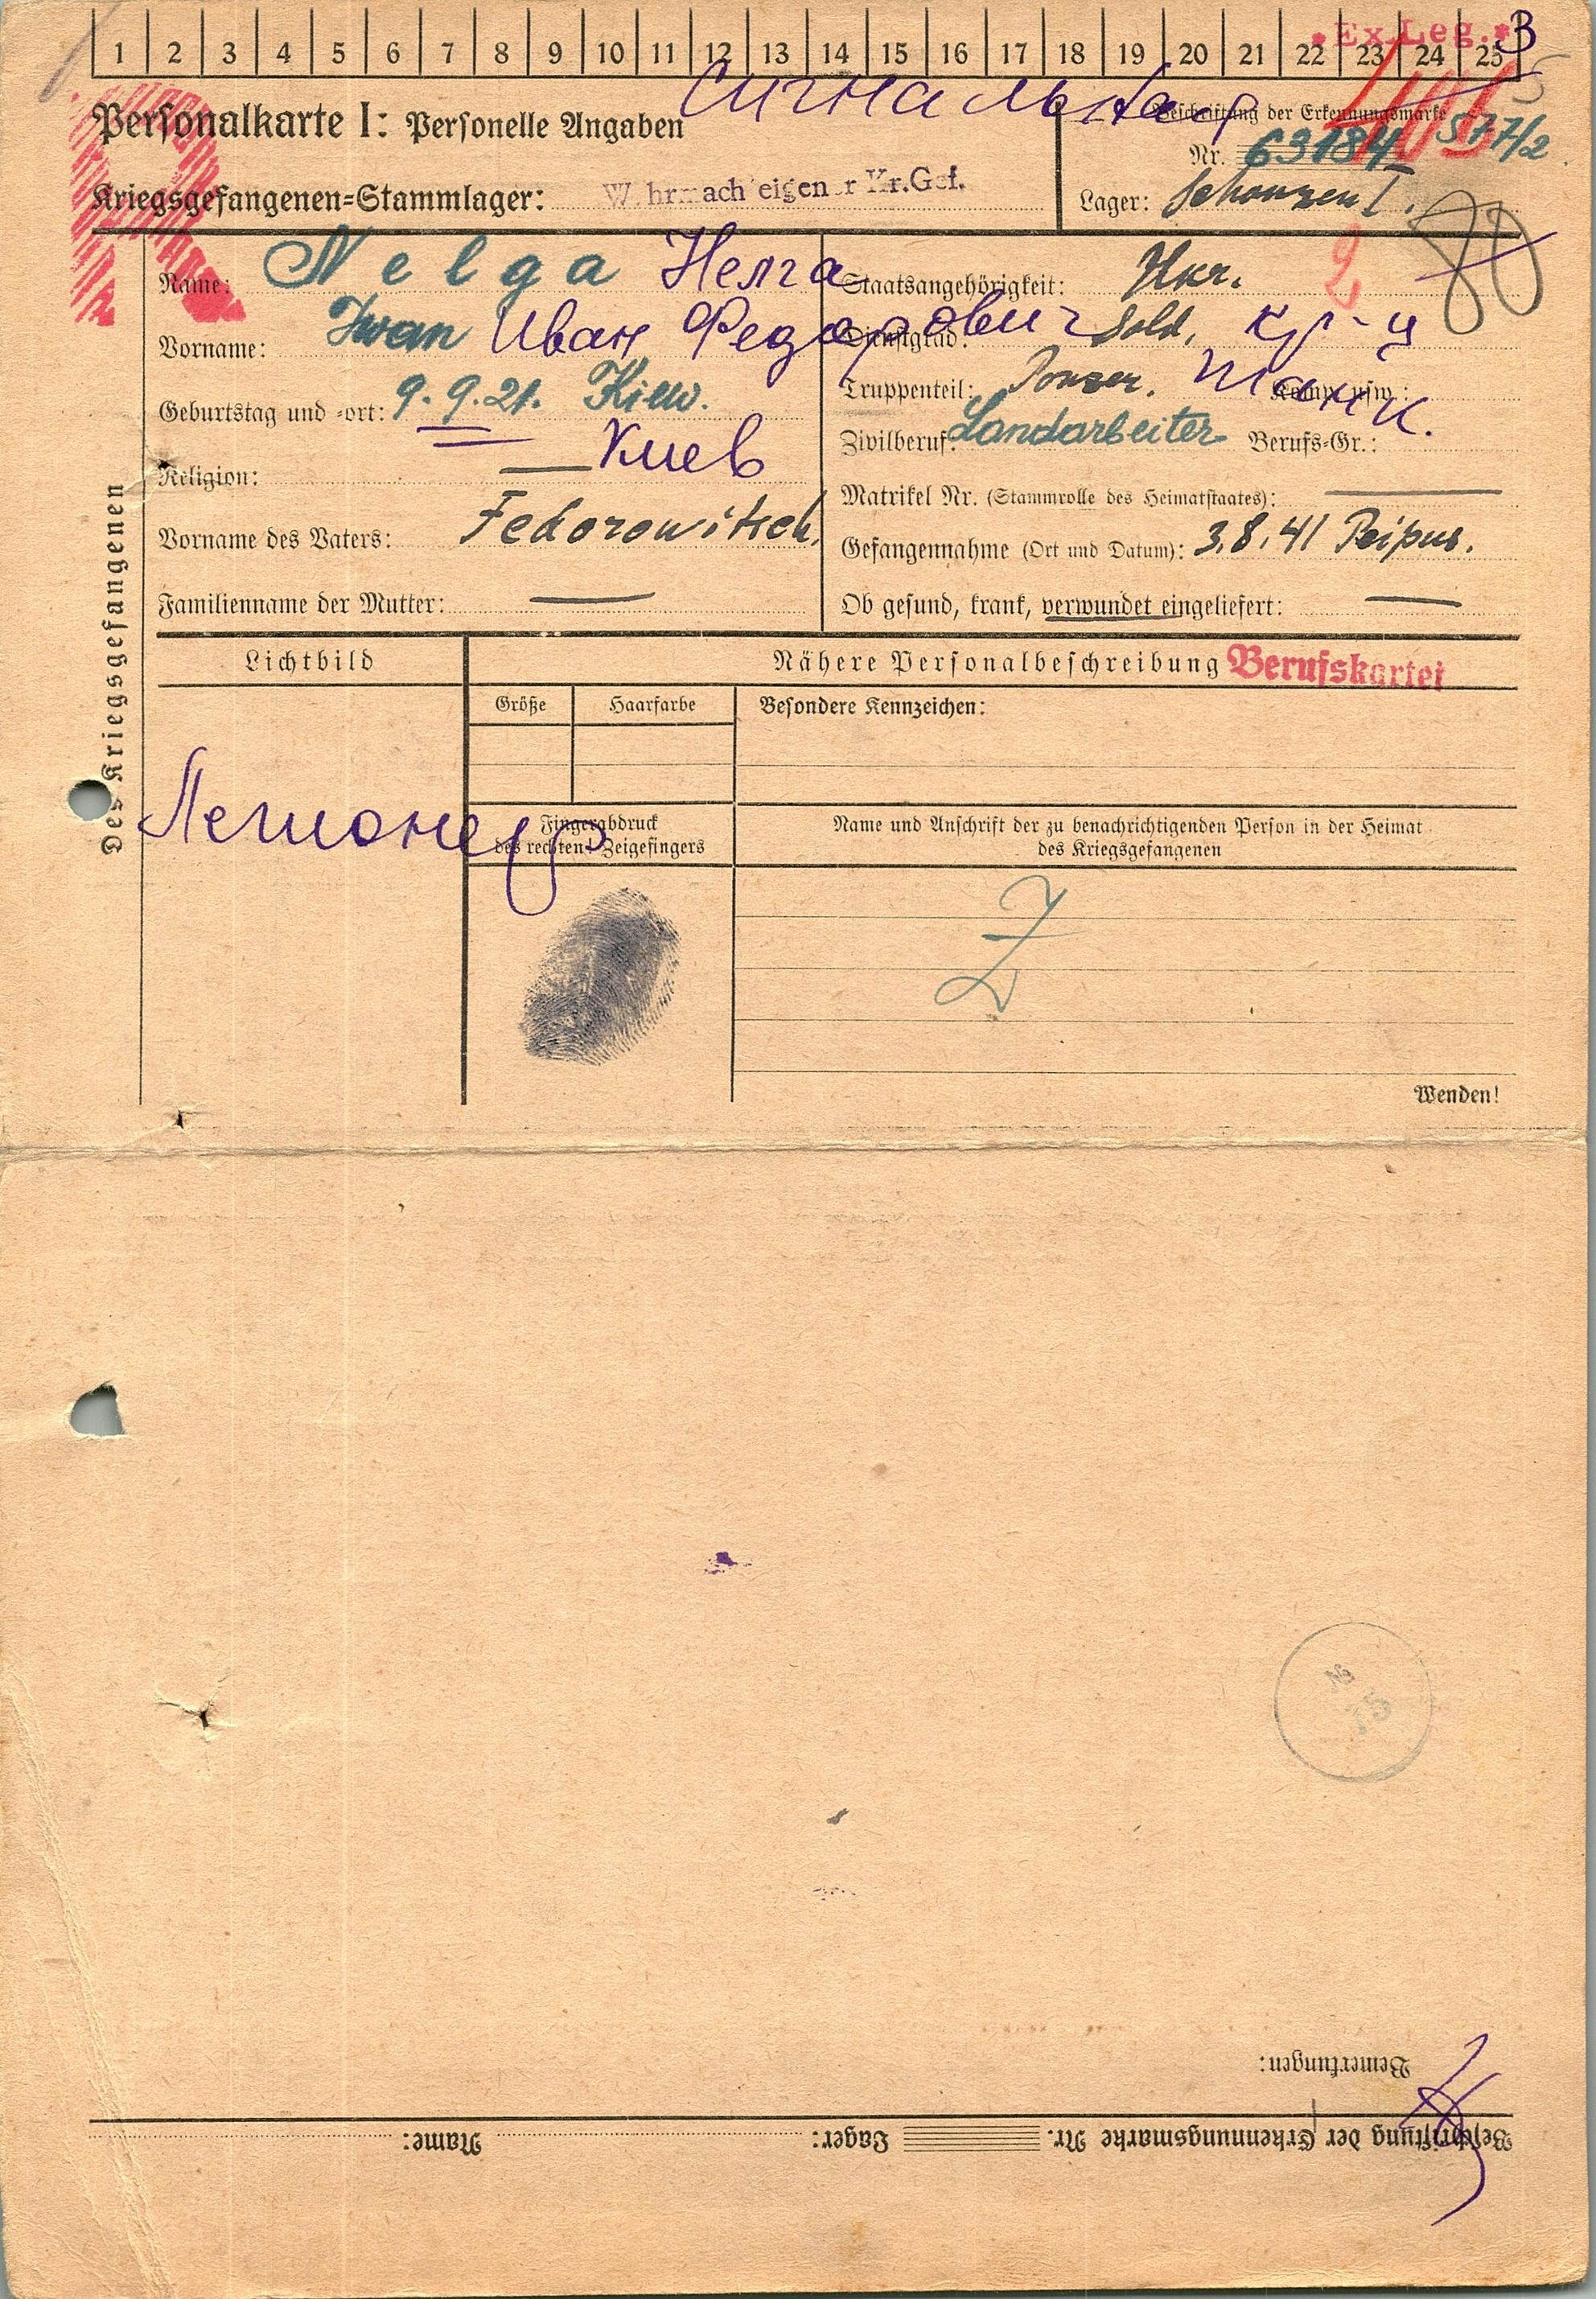 * Ex. Leg. * 3
1 2 3 4 5 6 7 8 9 10 11 12 13 14 15 16 17 18 19 20 21 22 23 24 25
Сигнальная
Personalkarte I: Personelle Angaben
Beschriftung der Erkennungsmarke
Nr. 63184 577/2
Kriegsgefangenen-Stammlager: W hrmach eigen r Kr.Gef.
Lager: Schanzen I.
Des Kriegsgefangenen
Name: Nelga Нелга
Vorname: Iwan Иван Федорович
Geburtstag und -ort: 9.9.21. Kiew.
Киев
Religion: —
Vorname des Vaters: Fedorowitsch.
Familienname der Mutter: —
Staatsangehörigkeit: Ukr. 2 80
Dienstgrad: Sold. кр-ц
Truppenteil: Panzer. Танк. Komp. usw.:
Zivilberuf: Landarbeiter Berufs-Gr.:
Matrikel Nr. (Stammrolle des Heimatstaates): —
Gefangennahme (Ort und Datum): 3.8.41 Peipus.
Ob gesund, krank, verwundet eingeliefert: —
Lichtbild
Nähere Personalbeschreibung Berufskartei
Größe Haarfarbe
Besondere Kennzeichen:
Легионер
Fingerabdruck
des rechten! Zeigefingers
Name und Anschrift der zu benachrichtigenden Person in der Heimat
des Kriegsgefangenen
Wenden!
№
75
Bemerkungen:
Beschriftung der Erkennungsmarke Nr. Lager: Name: